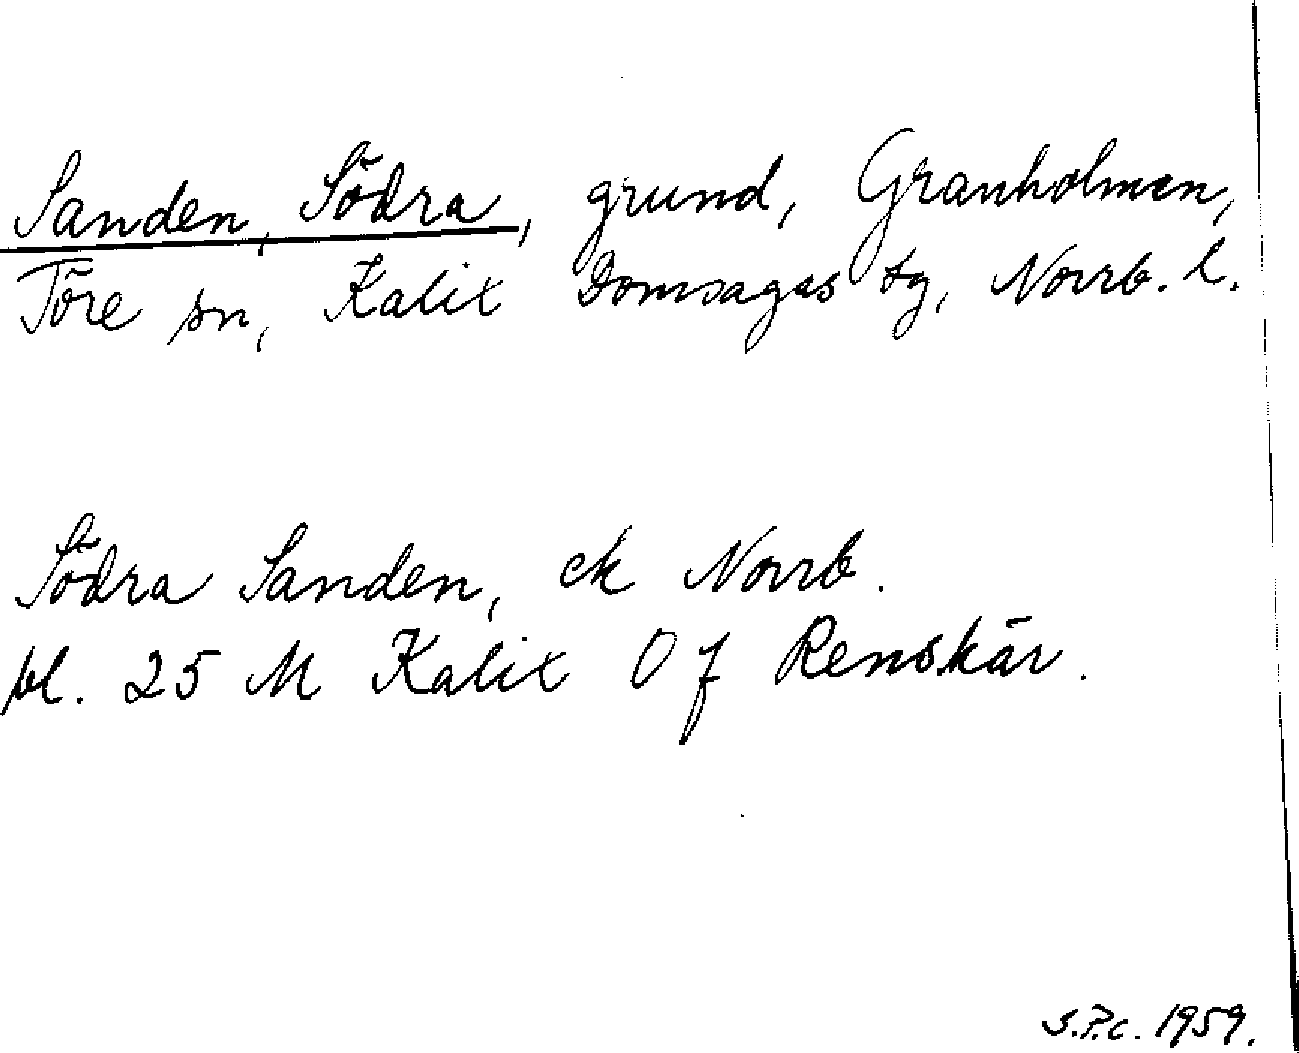 Sanden, Södra, grund, Granholmen,
Töre sn, Kalix Domsagas tg, Norrb. l.
Södra Sanden, ek Norrb.
bl. 25 M Kalix O f Renskär.
S.P.c. 1959.